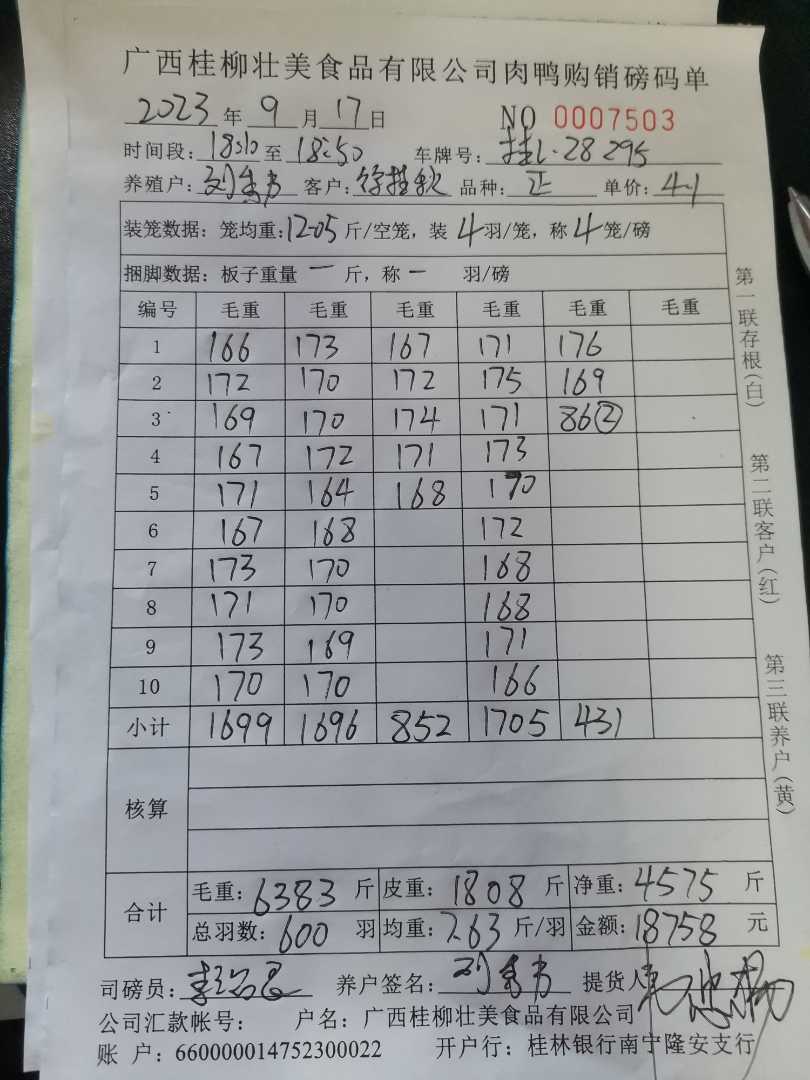 广西桂柳壮美食品有限公司肉鸭购销磅码单
2023年9月17日 NO 0007503
时间段:18:10至18:50 车牌号:桂L·28295
养殖户: 客户: 品种:正 单价:4.1
装笼数据:笼均重:12.05斤/空笼,装4羽/笼,称4笼/磅
捆脚数据:板子重量一斤,称一 羽/磅
编号 毛重 毛重 毛重 毛重 毛重 毛重
1 166 173 167 171 176
2 172 170 172 175 169
3 169 170 174 171 86②
4 167 172 171 173
5 171 164 168 170
6 167 168 172
7 173 170 168
8 171 170 168
9 173 169 171
10 170 170 166
小计 1699 1696 852 1705 431
核算
合计 毛重:6383斤 皮重:1808斤 净重:4575斤
总羽数:600羽 均重:7.63斤/羽 金额:18758元
司磅员: 养户签名: 提货人
公司汇款帐号: 户名:广西桂柳壮美食品有限公司
账 户:660000014752300022 开户行:桂林银行南宁隆安支行
第一联存根(白)
第二联客户(红)
第三联养户(黄)